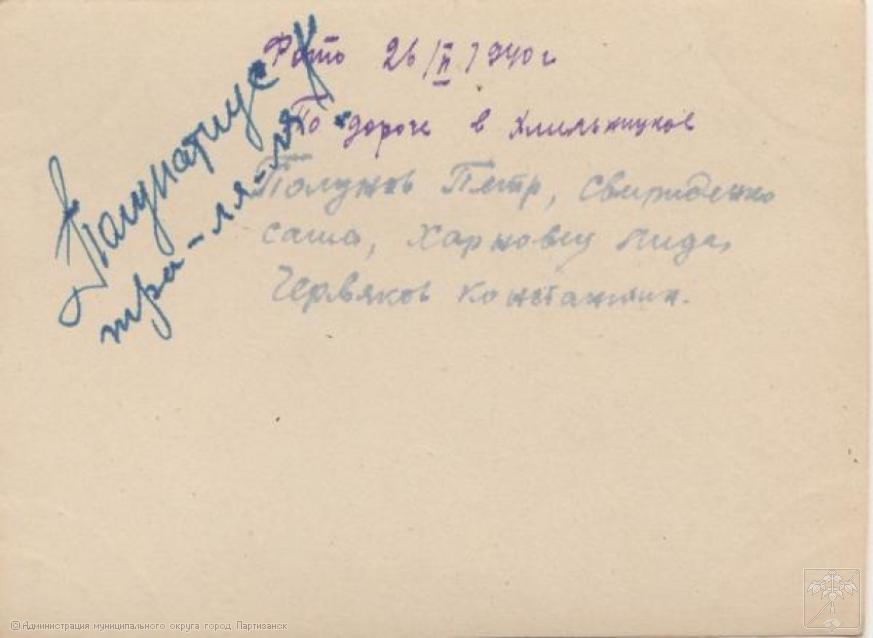 Фото 26/II 1940 г
По дороге в Хмельницкое
Полунов Петр, Свириденко
саша, Харновец Лида,
Червяков Константин.
Полунатиус К
тра-ля-ля.
© Администрация муниципального округа город Партизанск